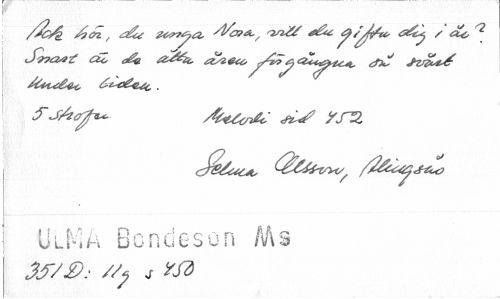 Ack hör, du unga Nora, vill du gifta dig i år?
Snart är de åtta åren förgångna så svårt
under tiden.
5 strofer. Melodi sid 452
Selma Olsson, Alingsås
ULMA Bondeson Ms
351 D: 11g s 450